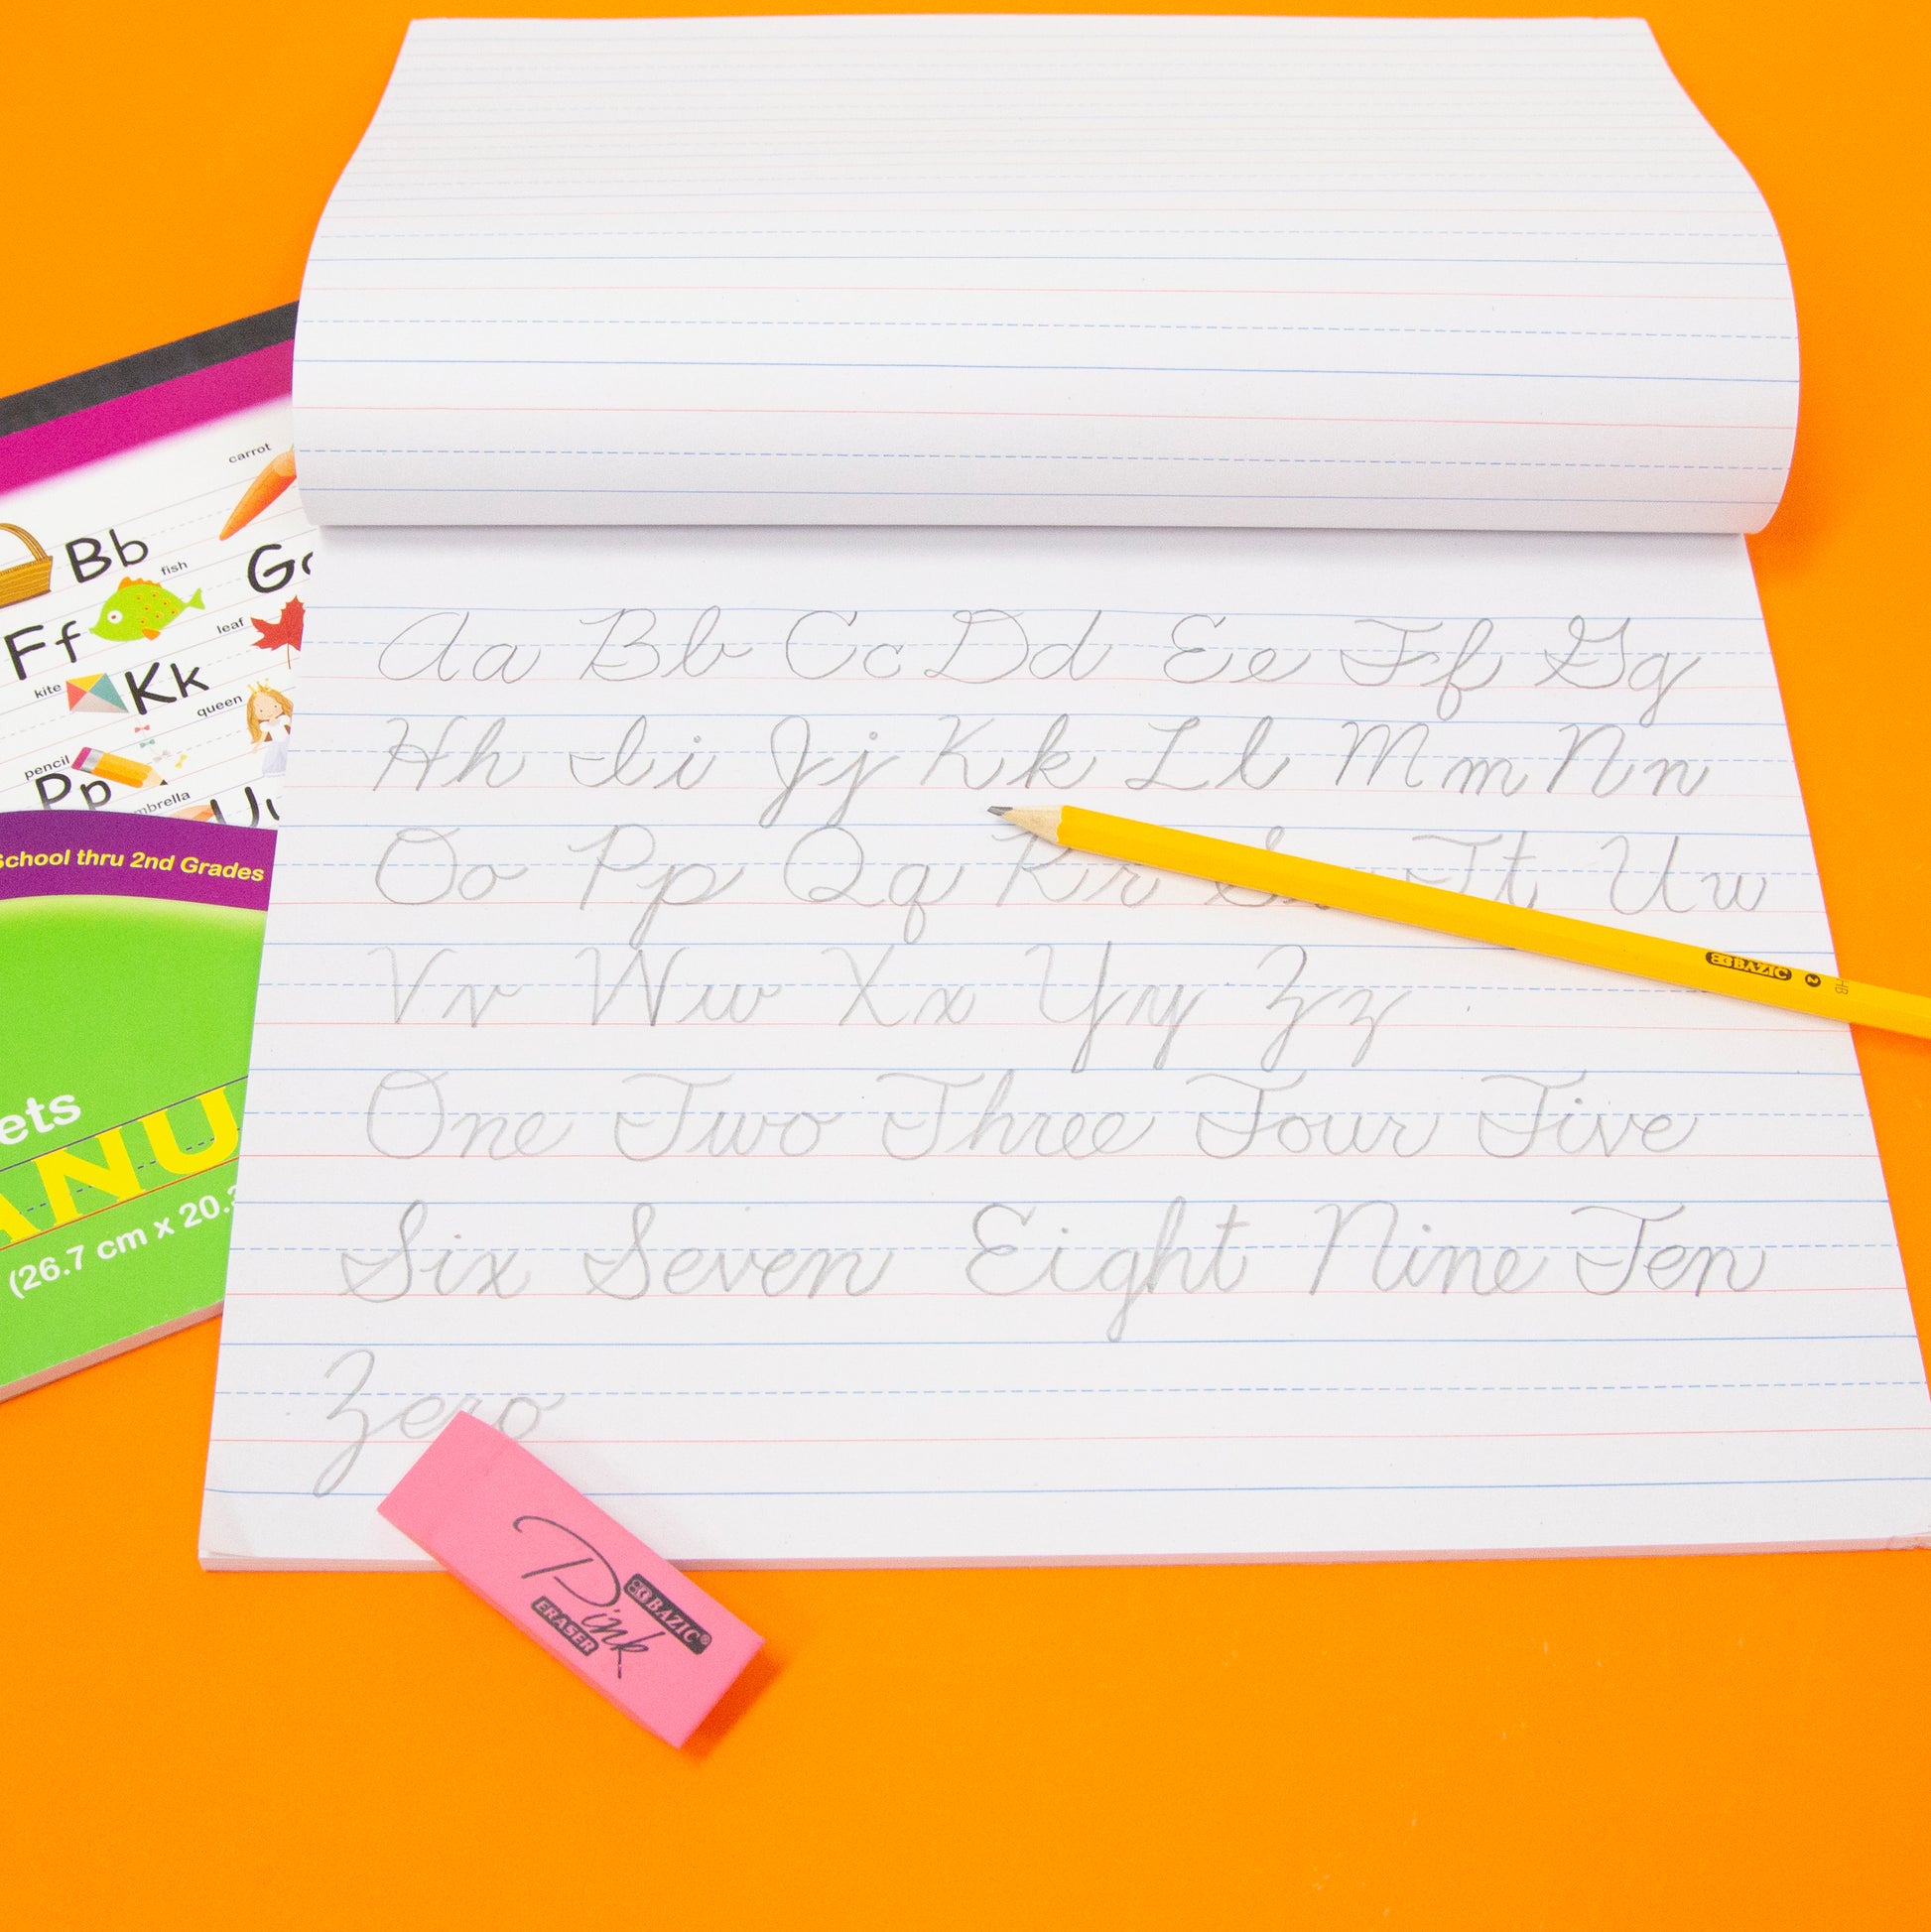 carrot
Bb
fish
G
Ff
leaf
kite
Kk
queen
pencil
Pp
mbrella
Uu
School thru 2nd Grades
ets
ANU
(26.7 cm x 20.3
Aa Bb Cc Dd Ee Ff Gg
Hh Ii Jj Kk Ll Mm Nn
Oo Pp Qq Rr Ss Tt Uu
Vv Ww Xx Yy Zz
One Two Three Four Five
Six Seven Eight Nine Ten
Zero
BAZIC 2 HB
BAZIC®
Pink
ERASER